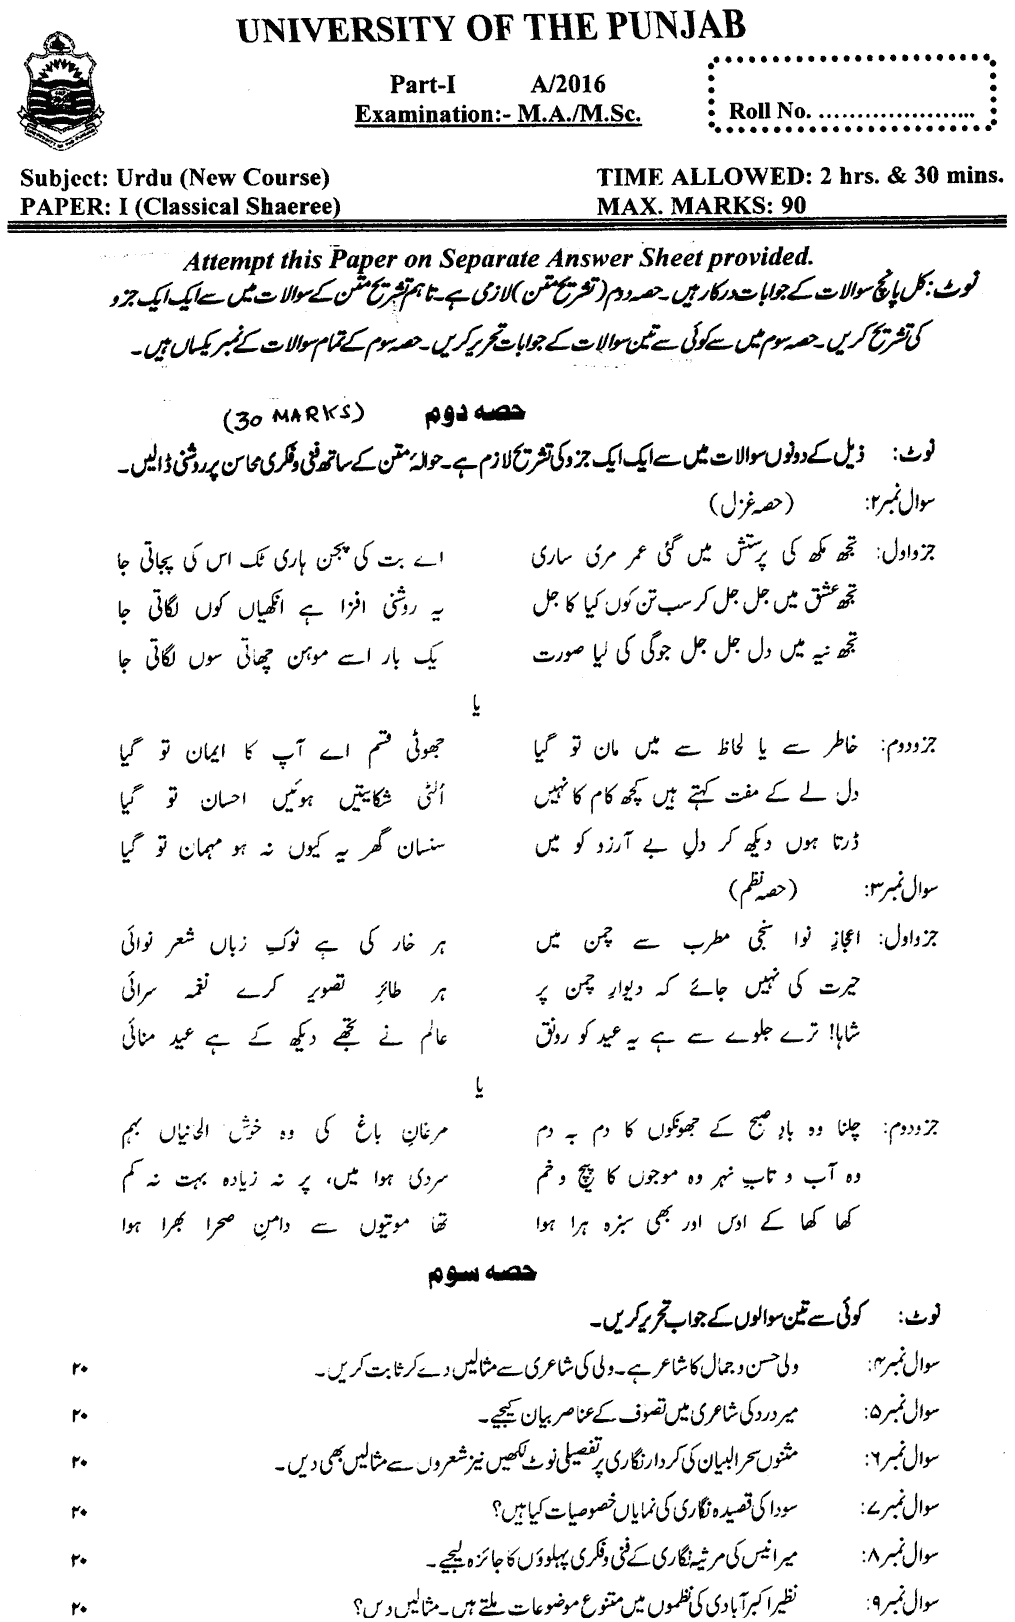 UNIVERSITY OF THE PUNJAB
Part-I A/2016
Examination:- M.A./M.Sc.
Roll No. ......................
Subject: Urdu (New Course)
TIME ALLOWED: 2 hrs. & 30 mins.
PAPER: I (Classical Shaeree)
MAX. MARKS: 90
Attempt this Paper on Separate Answer Sheet provided.
نوٹ: کل پانچ سوالات کے جوابات درکار ہیں۔ حصہ دوم (تشریح متن) لازمی ہے۔ تاہم تشریح متن کے سوالات میں سے ایک ایک جزو
کی تشریح کریں۔ حصہ سوم میں سے کوئی سے تین سوالات کے جوابات تحریر کریں۔ حصہ سوم کے تمام سوالات کے نمبر یکساں ہیں۔
حصہ دوم (30 MARKS)
نوٹ: ذیل کے دونوں سوالات میں سے ایک ایک جزو کی تشریح لازم ہے۔ حوالۂ متن کے ساتھ فنی و فکری محاسن پر روشنی ڈالیں۔
سوال نمبر۲: (حصہ غزل)
جزو اول: تجھ مکھ کی پرستش میں گئی عمر مری ساری اے بت کی پجن ہاری ٹک اس کی پچاتی جا
تجھ عشق میں جل جل کر سب تن کوں کیا کاجل یہ روشنی افزا ہے انکھیاں کوں لگاتی جا
تجھ نیہ میں دل جل جل جوگی کی لیا صورت یک بار اسے موہن چھاتی سوں لگاتی جا
یا
جزو دوم: خاطر سے یا لحاظ سے میں مان تو گیا جھوٹی قسم اے آپ کا ایمان تو گیا
دل لے کے مفت کہتے ہیں کچھ کام کا نہیں اُلٹی شکایتیں ہوئیں احسان تو گیا
ڈرتا ہوں دیکھ کر دلِ بے آرزو کو میں سنسان گھر یہ کیوں نہ ہو مہمان تو گیا
سوال نمبر۳: (حصہ نظم)
جزو اول: اعجازِ نوا سنجی مطرب سے چمن میں ہر خار کی ہے نوکِ زباں شعر نوائی
حیرت کی نہیں جائے کہ دیوارِ چمن پر ہر طائرِ تصویر کرے نغمہ سرائی
شاہا! ترے جلوے سے ہے یہ عید کو رونق عالم نے تجھے دیکھ کے ہے عید منائی
یا
جزو دوم: چلنا وہ بادِ صبح کے جھونکوں کا دم بہ دم مرغانِ باغ کی وہ خوش الحانیاں بہم
وہ آب و تابِ نہر وہ موجوں کا پیچ و خم سردی ہوا میں، پر نہ زیادہ بہت نہ کم
کھا کھا کے اوس اور بھی سبزہ ہرا ہوا تھا موتیوں سے دامنِ صحرا بھرا ہوا
حصہ سوم
نوٹ: کوئی سے تین سوالوں کے جواب تحریر کریں۔
سوال نمبر۴: ولی حسن و جمال کا شاعر ہے۔ ولی کی شاعری سے مثالیں دے کر ثابت کریں۔ ۲۰
سوال نمبر۵: میر درد کی شاعری میں تصوف کے عناصر بیان کیجیے۔ ۲۰
سوال نمبر۶: مثنوں سحر البیان کی کردار نگاری پر تفصیلی نوٹ لکھیں نیز شعروں سے مثالیں بھی دیں۔ ۲۰
سوال نمبر۷: سودا کی قصیدہ نگاری کی نمایاں خصوصیات کیا ہیں؟ ۲۰
سوال نمبر۸: میر انیس کی مرثیہ نگاری کے فنی و فکری پہلوؤں کا جائزہ لیجیے۔ ۲۰
سوال نمبر۹: نظیر اکبر آبادی کی نظموں میں متنوع موضوعات ملتے ہیں۔ مثالیں دیں؟ ۲۰